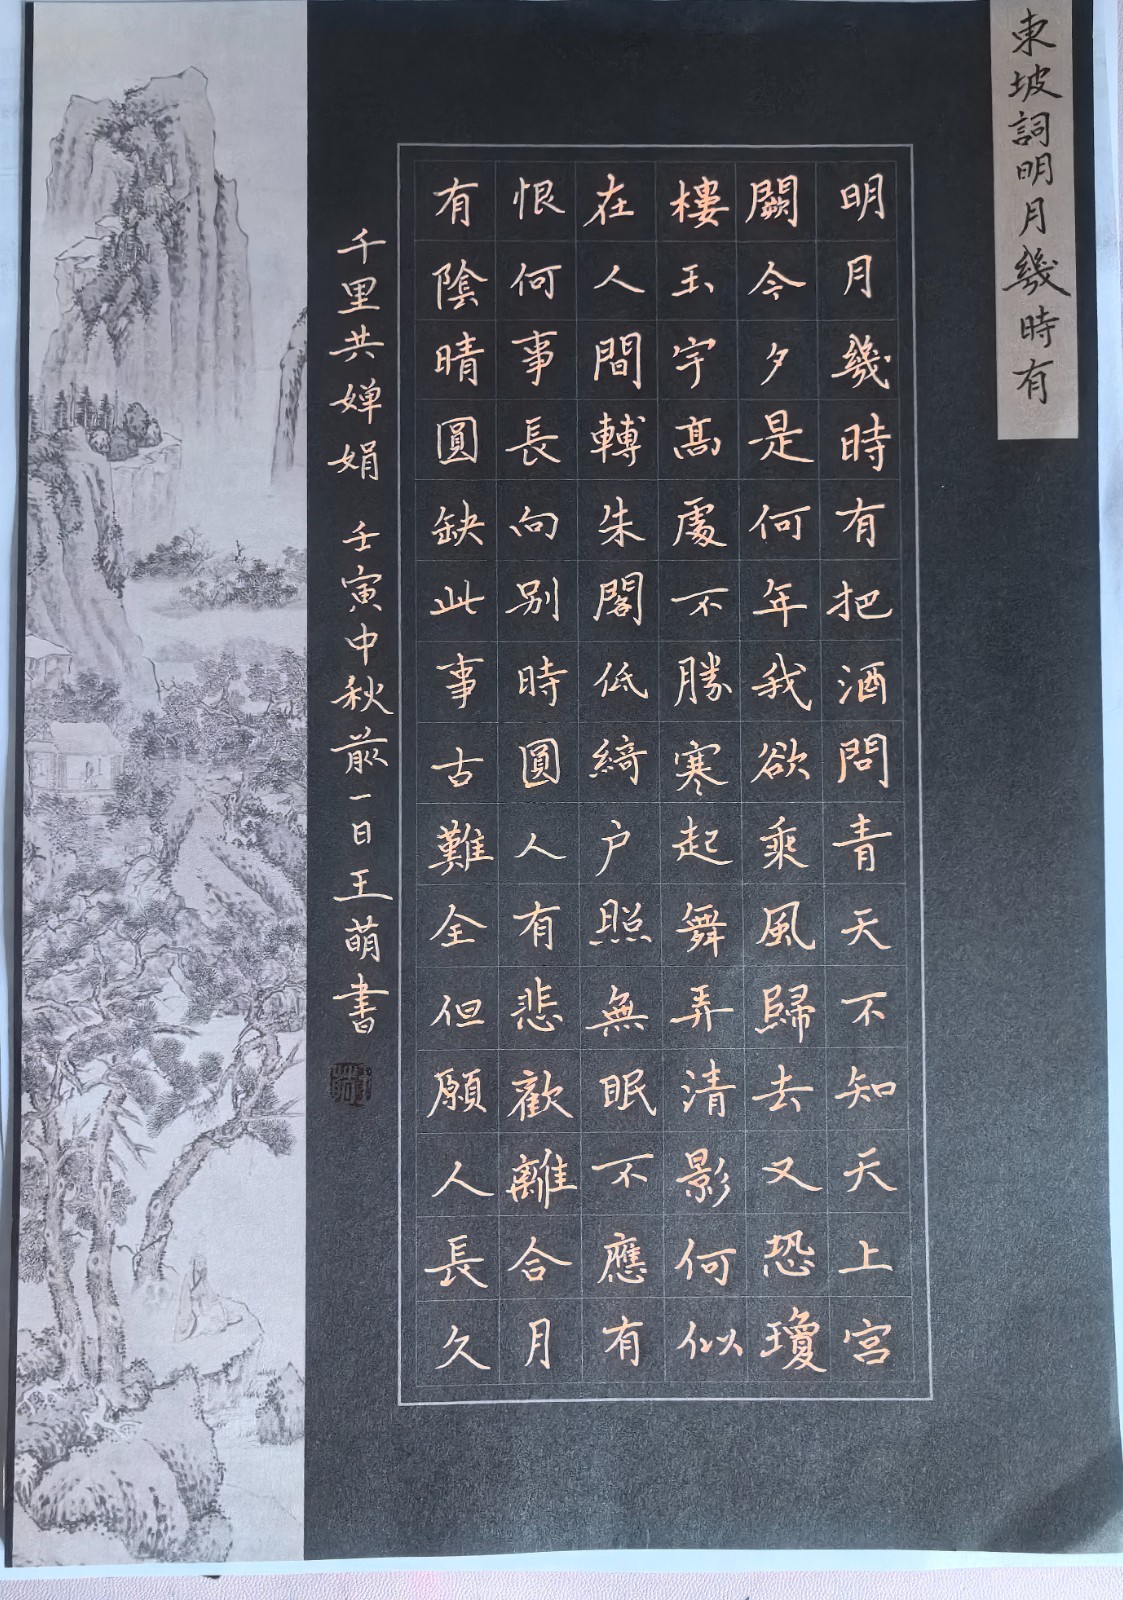 東坡詞明月幾時有
明月幾時有把酒問青天不知天上宮
闕今夕是何年我欲乘風歸去又恐瓊
樓玉宇髙處不勝寒起舞弄清影何似
在人間轉朱閣低綺户照無眠不應有
恨何事長向别時圓人有悲歡離合月
有陰晴圓缺此事古難全但願人長久
千里共婵娟 壬寅中秋前一日王萌書
王萌